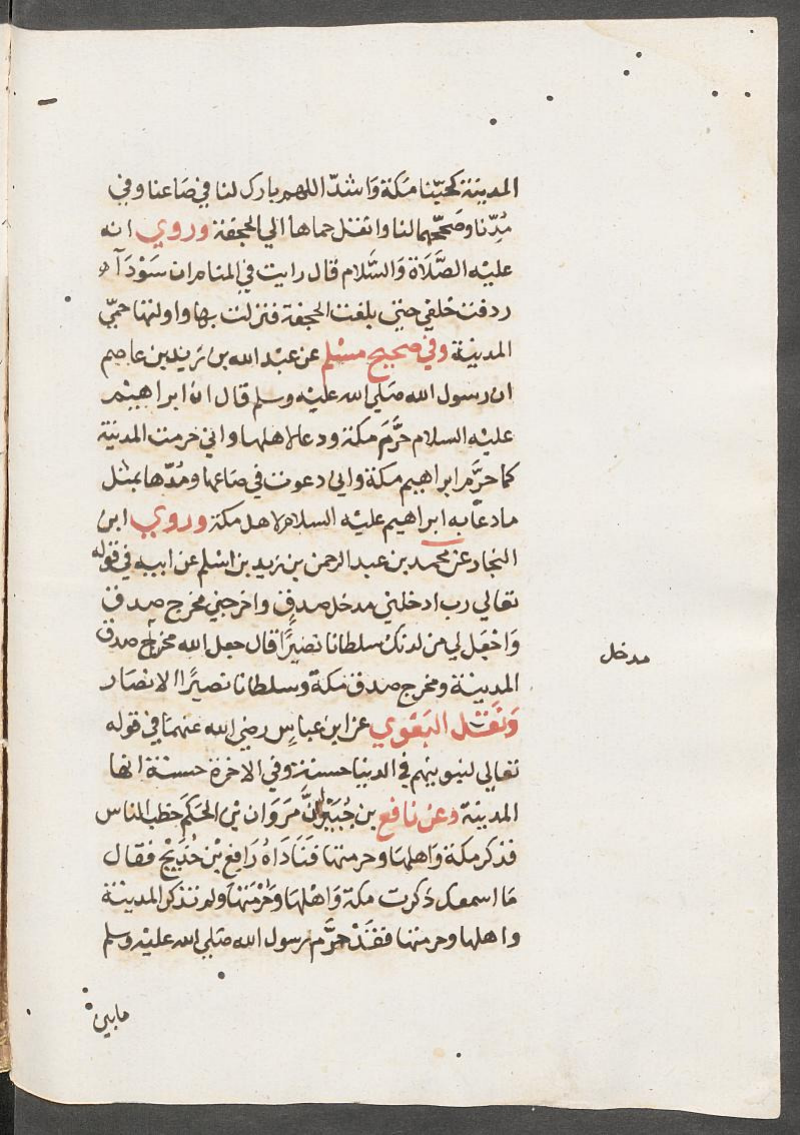 المدينة كحبنا مكة وَاشدّ اللهم بارك لنا في صَاعنا وفي
مُدِّنا وصَححّها لنا وانقل حماها الي الجحفة وروي انه
عليْه الصَّلَاة وَالسَّلام قال رايت في المنام ان سَوْدَآء
ردفت خلفي حتي بلغت الجحفة فنزلت بها واولتها حمّي
المدينة وفي صحيح مسْلم عن عبْد الله بن زيد بن عاصم
ان رسول الله صَلي الله عليْه وسلم قال ان ابراهيْم
عليْه السلام حرَّمَ مكة ودعا لاهلها واني حرمت المدينة
كما حرَّم ابراهيم مكة واني دعوت في صَاعها ومُدّها بمثل
ما دعَا به ابراهيم عليْه السلام لاهل مكة وروي ابن
النجار عن محمد بن عبد الرحمن بن زيد بن اسْلم عن ابيه في قوله
تعالي رب ادخلني مدخل صدق واخرجني مخرج صدق
وَاجْعَل لي من لدنك سلطانا نصيرًا قال جعل الله مخرج صدق
مدخل
المدينة ومخرج صدق مكة وسلطانا نصيرًا الانصَار
وَنَقَل البَغوي عن ابن عباس رضي الله عنهمَا في قوله
تعالي لنبوينهم في الدنيا حسنة وفي الاخرة حسنة انها
المدينة وعن نافع بن جُبَيْر انَّ مَرَوَان بْن الحَكَم خطب الناس
فذكر مكة وَاهلهَا وحرمتها فنَادَاهُ رَافِع بْن خَدِيْج فقال
مَا اسمعك ذكرت مكة وَاهْلهَا وَحُرْمَتهَا ولم تذكر المدينة
واهلها وحرمتها فقَدْ حرَّم رسول الله صَلي الله عليْه وسلم
مابين